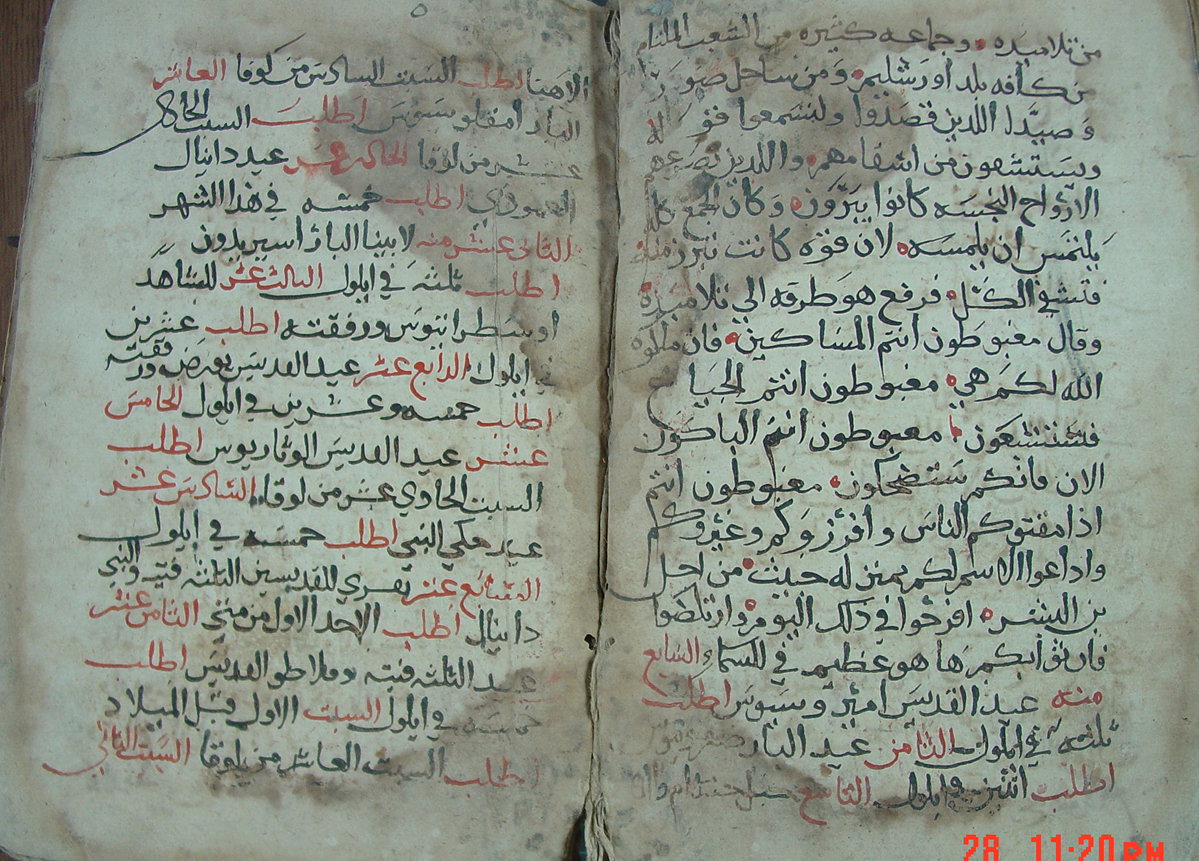 من تلاميذه وجماعه كثيره من الشعب الملتام
من كافه بلد اورشليم ومن ساحل صور
وصيدا اللذين قصدوا وليسمعوا قوله
ويستشفون من اسقامهم واللذين تصرعهم
الارواح النجسه كانوا يبرون وكان الجمع كله
يلتمس ان يلمسه لان قوه كانت تبرز منه
فتشفي الكل فرفع هو طرفه الي تلاميذه
وقال مغبوطون انتم المساكين فان ملكوه
الله لكم هي مغبوطون انتم الجياع
فستشبعون مغبوطون انتم الباكون
الان فانكم ستضحكون مغبوطون انتم
اذا مقتوكم الناس وافرزوكم وعيروكم
واذاعوا الاسم لكم من اجل
بن البشر افرحوا في ذلك اليوم وارتكضوا
فان ثوابكم ها هو عظيم في السماء السابع
منه عيد القديس امبروسيوس اطلب
ثلثه في ايلول الثامن عيد البار
اطلب اثنين في ايلول التاسع حبل
اطلب السبت السادس من لوقا العاشر
البار اطلب السبت الحادي
عشر من لوقا الحادي عشر عيد دانيال
العمودي اطلب خمسه في هذا الشهر
الثاني عشر منه لابينا البار اسبيريدون
اطلب ثلثه في ايلول الثالث عشر للشاهد
اوسطراتيوس ورفقته اطلب عشرين
في ايلول الرابع عشر عيد القديس ورفقته
اطلب خمسه وعشرين في ايلول الخامس
عشر عيد القديس الوثاريوس اطلب
السبت الحادي عشر من لوقا السادس عشر
عيد حكي النبي اطلب خمسه في ايلول
السابع عشر للقديسين الثلثه فتيه والنبي
دانيال اطلب الاحد الاول من متي الثامن عشر
عيد الثلثه فتيه القديس اطلب
في ايلول السبت الاول قبل الميلاد
اطلب السبت العاشر من لوقا السبت الثاني
28 11:20 PM